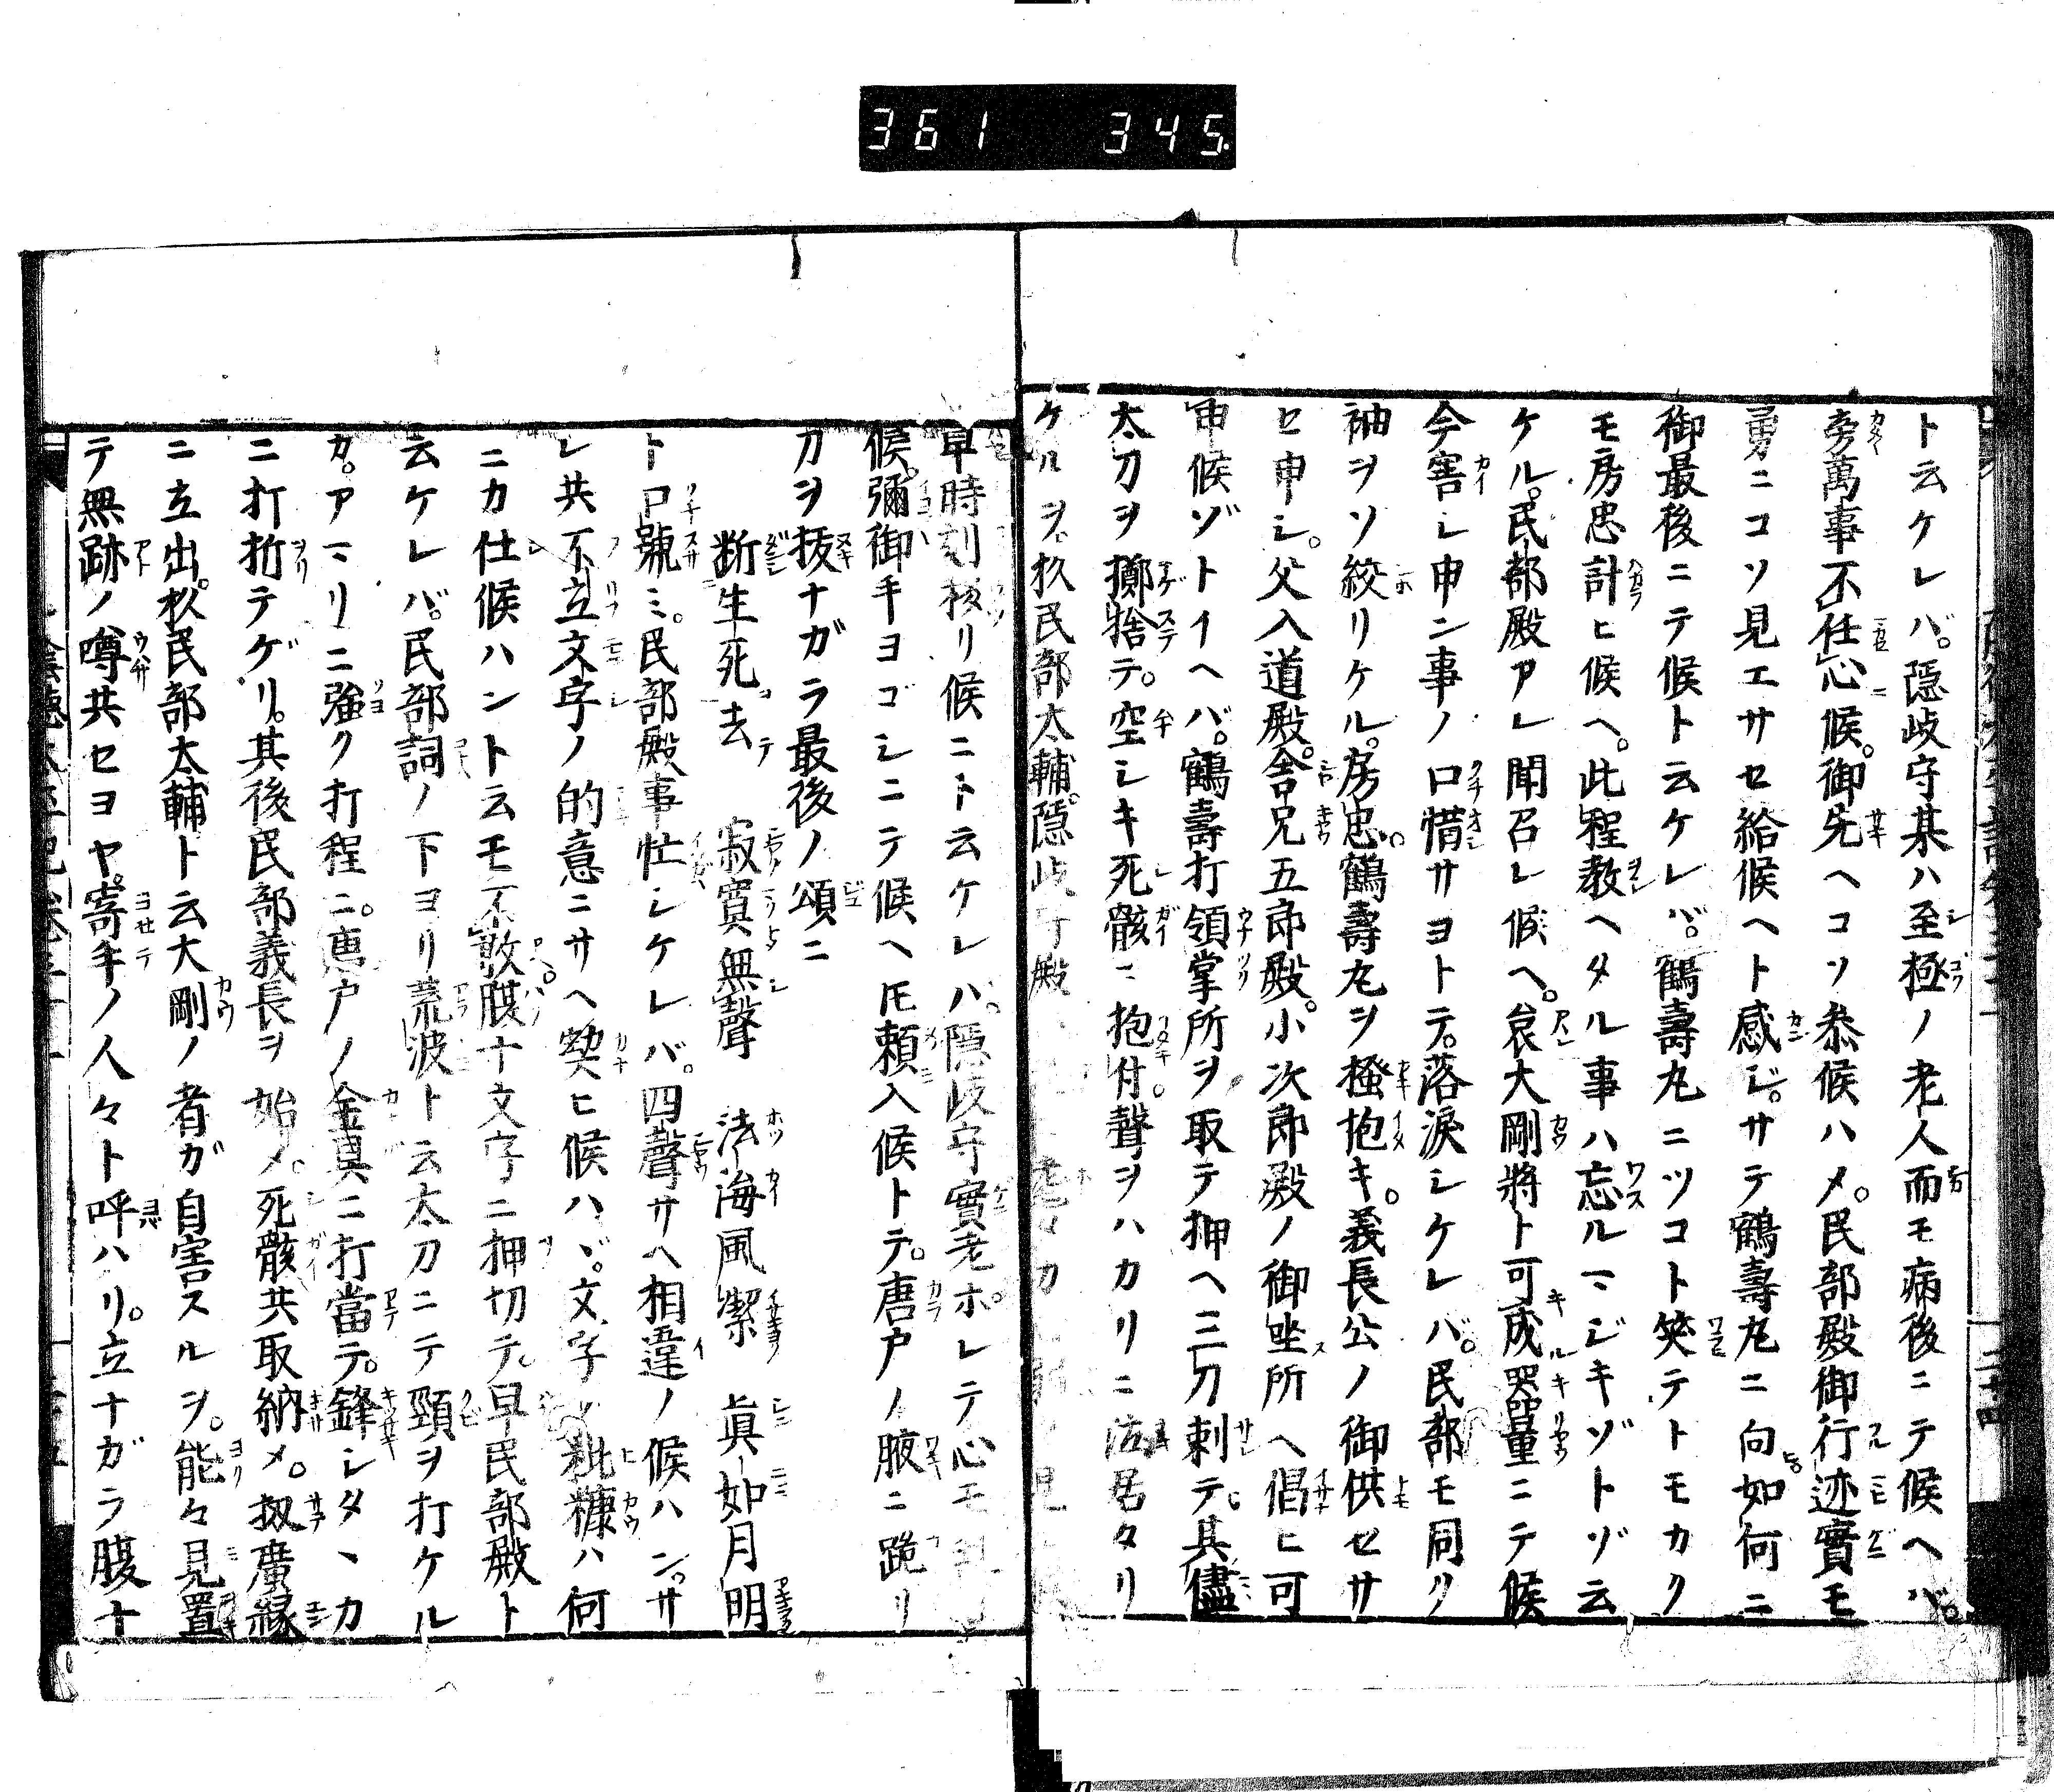 361 345
ト云ケレバ。隠岐守某ハ至極ノ老人而モ病後ニテ候ヘバ。
旁萬事不任心候。御先ヘコソ参候ハメ。民部殿御行迹實モ
勇ニコソ見エサセ給候ヘト感ジ。サテ鶴壽丸ニ向如何ニ
御最後ニテ候ト云ケレバ。鶴壽丸ニツコト笑テトモカク
モ房忠計ヒ候ヘ。此程教ヘタル事ハ忘ルマジキゾトゾ云
ケル。民部殿アレ聞召レ候ヘ。哀大剛將ト可成器量ニテ候
今害シ申ン事ノ口惜サヨトテ。落涙シケレバ。民部モ同ク
袖ヲソ絞リケル。房忠鶴壽丸ヲ掻抱キ。義長公ノ御供セサ
セ申シ。父入道殿。舎兄五郎殿。小次郎殿ノ御坐所ヘ倡ヒ可
申候ゾトイヘバ。鶴壽打領掌所ヲ取テ押ヘ三刀刺テ。其儘
太刀ヲ擲捨テ。空シキ死骸ニ抱付。聲ヲハカリニ泣居タリ
ケルヲ。杦民部太輔。隠岐守殿
早時刻移リ候ニト云ケレハ。隠岐守實老ホレテ心モ
候。彌御手ヨゴシニテ候ヘ𪜈頼入候トテ。唐戸ノ腋ニ跪リ
刀ヲ抜ナガラ最後ノ頌ニ
断生死去 寂寞無聲 法海風潔 眞如月明
ト口號ミ。民部殿事忙シケレバ。四聲サヘ相違ノ候ハン。サ
レ共不立文字ノ的意ニサヘ契ヒ候ハヾ。文字ノ粃糠ハ何
ニカ仕候ハント云モ不敢腹十文字ニ押切テ。早民部殿ト
云ケレバ。民部詞ノ下ヨリ荒波ト云太刀ニテ頸ヲ打ケル
カ。アマリニ強ク打程ニ。唐戸ノ金具ニ打當テ。鋒シタヽカ
ニ打折テゲリ。其後民部義長ヲ始メ。死骸共取納メ。扨廣縁
ニ立出。杦民部太輔ト云大剛ノ者ガ自害スルヲ。能々見置
テ無跡ノ噂共セヨヤ。寄手ノ人々ト呼ハリ。立ナガラ腹十